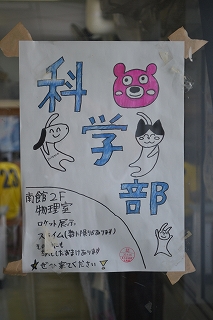 科
学
部
南館2F
物理室
ロケット展示
スライム(数に限りがあります)
おまけあります
★ぜひ来てください!